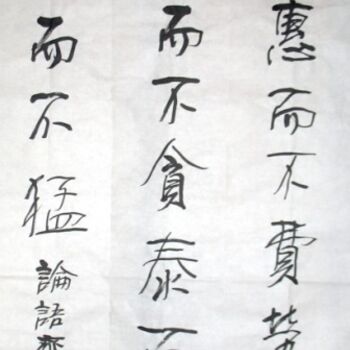 惠而不費
而不貪泰
而不猛論語